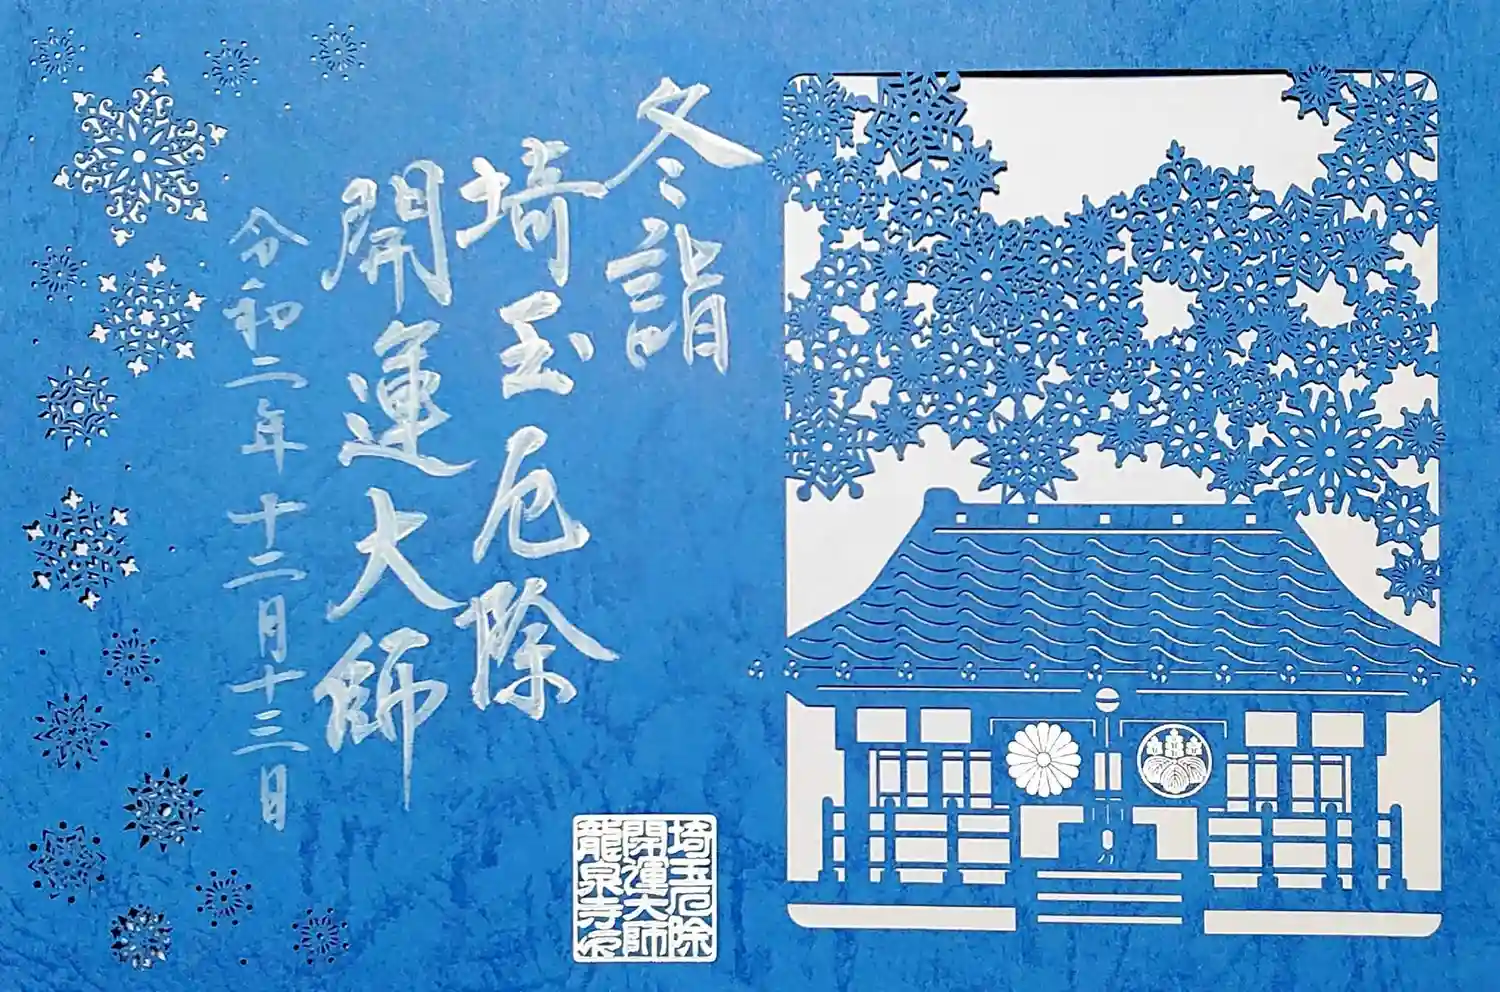 冬詣
埼玉厄除
開運大師
令和二年十二月十三日
埼玉厄除
開運大師
龍泉寺印